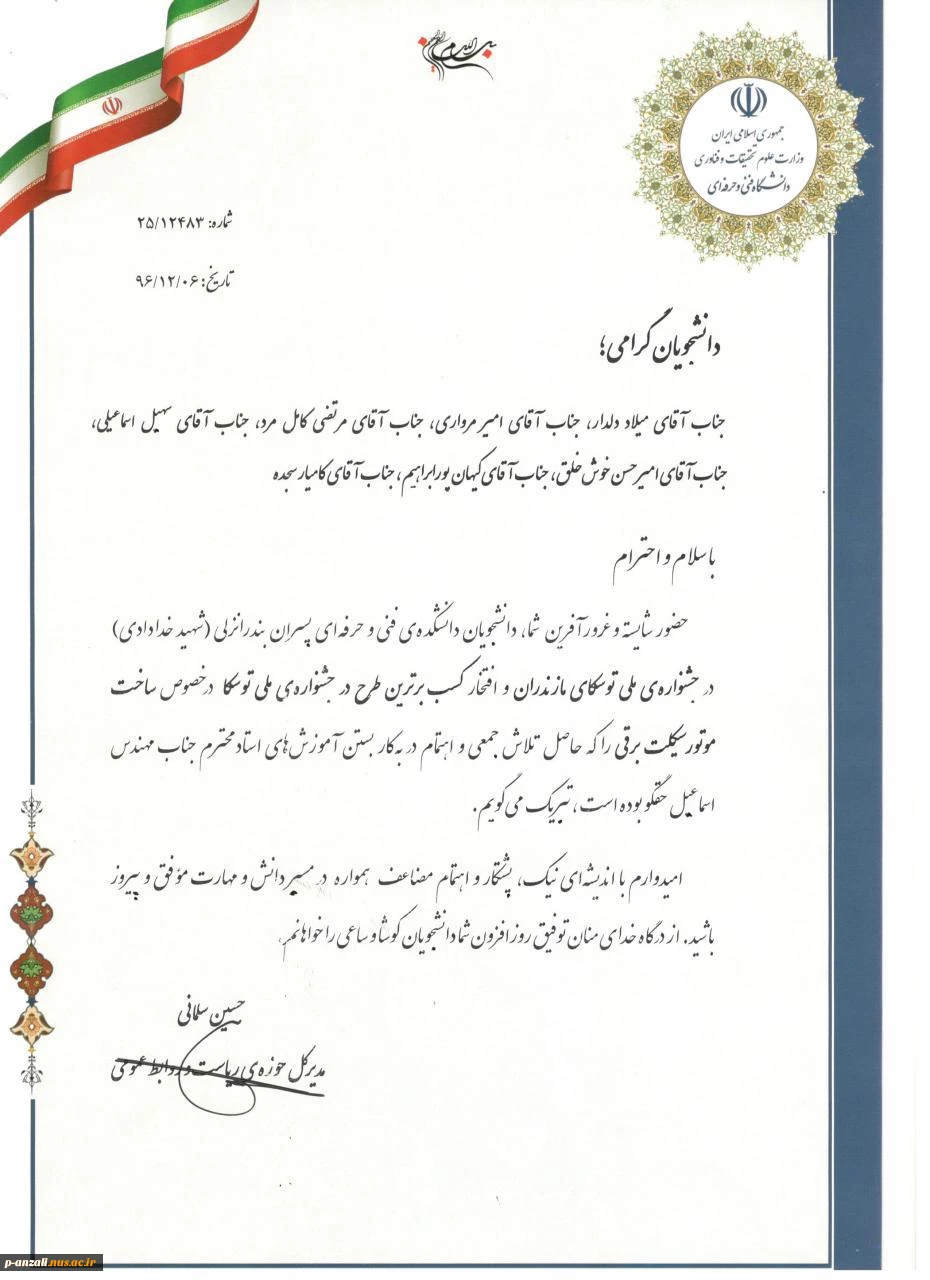 بسم الله الرحمن الرحیم
جمهوری اسلامی ایران
وزارت علوم تحقیقات و فناوری
دانشگاه فنی و حرفه‌ای
شماره: ۲۵/۱۲۴۸۳
تاریخ: ۹۶/۱۲/۰۶
دانشجویان گرامی؛
جناب آقای میلاد دلدار، جناب آقای امیر مرواری، جناب آقای مرتضی کامل مرد، جناب آقای سهیل اسماعیلی،
جناب آقای امیرحسن خوش خلق، جناب آقای کیهان پورابراهیم، جناب آقای کامیار سجده
با سلام و احترام
حضور شایسته و غرورآفرین شما، دانشجویان دانشکده‌ی فنی و حرفه‌ای پسران بندرانزلی (شهید خدادادی)
در جشنواره‌ی ملی توسکای مازندران و افتخار کسب برترین طرح در جشنواره‌ی ملی توسکا درخصوص ساخت
موتورسیکلت برقی را که حاصل تلاش جمعی و اهتمام در به‌کار بستن آموزش‌های استاد محترم جناب مهندس
اسماعیل حقگو بوده است، تبریک می‌گویم.
امیدوارم با اندیشه‌ای نیک، پشتکار و اهتمام مضاعف همواره در مسیر دانش و مهارت مؤفق و پیروز
باشید. از درگاه خدای منان توفیق روزافزون شما دانشجویان کوشا و ساعی را خواهانم.
حسین سلمانی
مدیرکل حوزه‌ی ریاست و روابط عمومی
p-anzali.nus.ac.ir